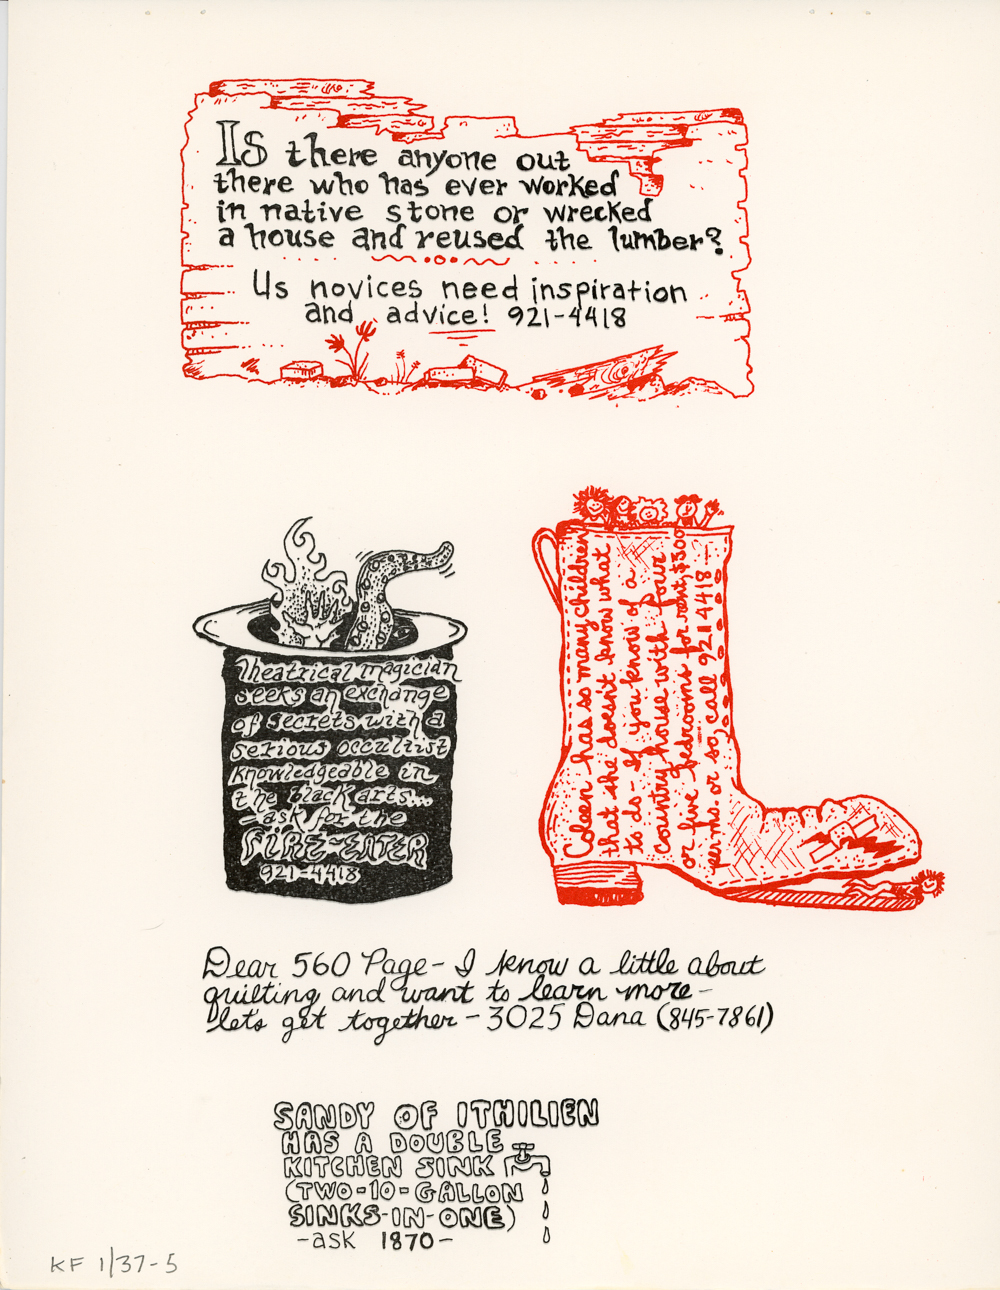 Is there anyone out
there who has ever worked
in native stone or wrecked
a house and reused the lumber?
Us novices need inspiration
and advice! 921-4418
Theatrical magician
seeks an exchange
of secrets with a
serious occultist
knowledgeable in
the black arts...
-ask for the
FIRE-EATER
921-4418
Coleen has so many children
that she doesn't know what
to do - If you know of a
country house with four
or five bedrooms for rent, $300
per mo. or so, call 921 4418 -
Dear 560 Page - I know a little about
quilting and want to learn more -
let's get together - 3025 Dana (845-7861)
SANDY OF ITHILIEN
HAS A DOUBLE
KITCHEN SINK
(TWO-10-GALLON
SINKS-IN-ONE)
-ask 1870-
KF 1/37-5